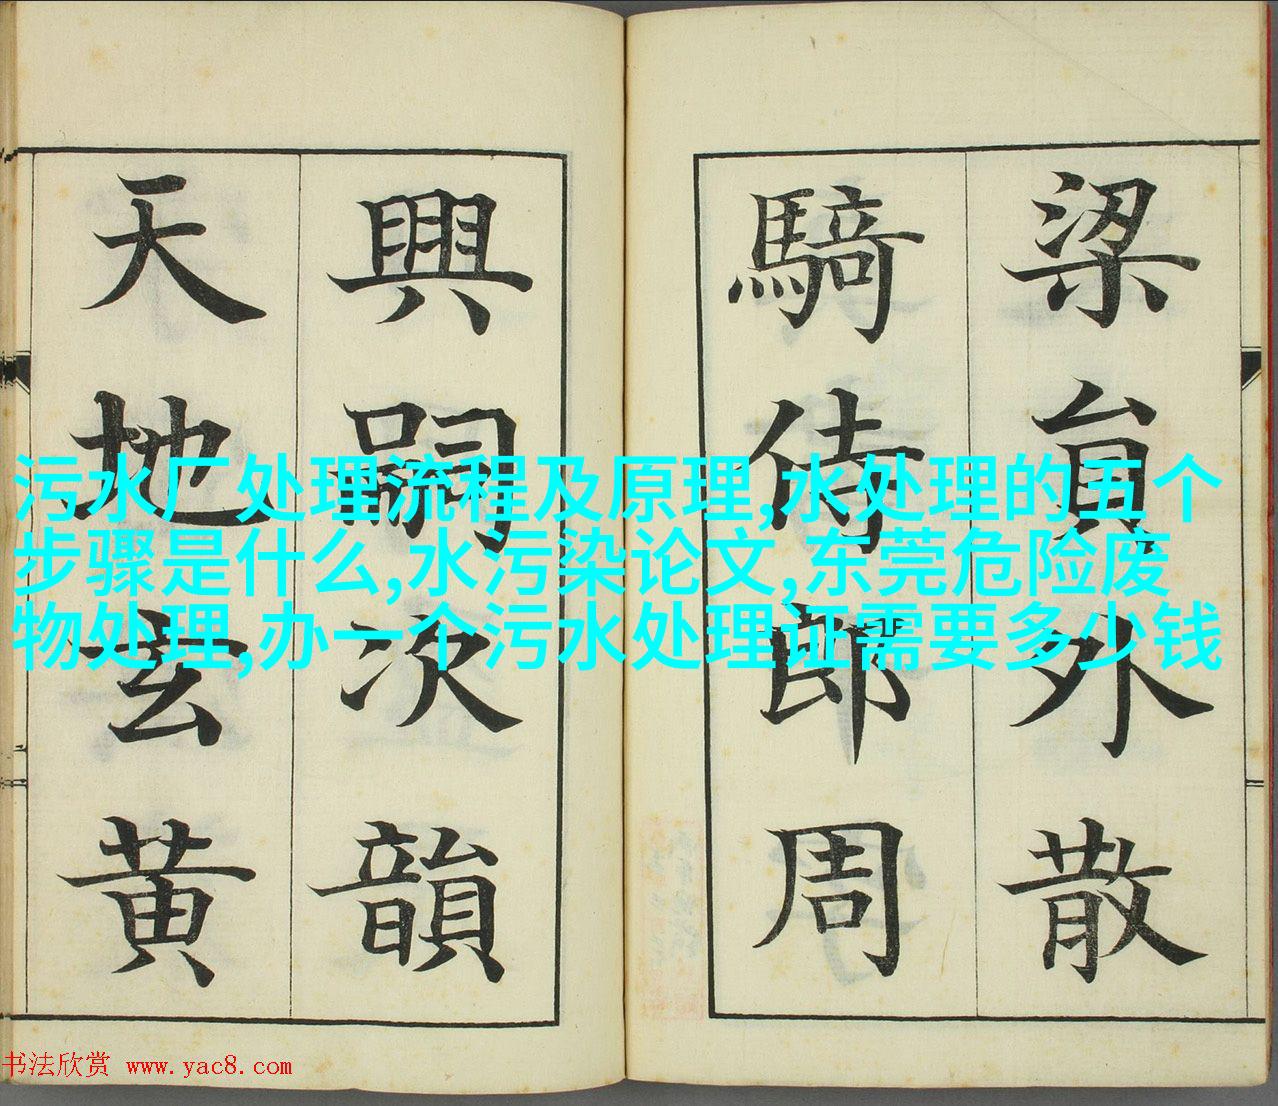 梁貟外散
騎侍郎周
興嗣次韻
天地玄黄
污水厂处理流程及原理,水处理的五个
步骤是什么,水污染论文,东莞危险废
物处理,办一个污水处理证需要多少钱
书法欣赏 www.yac8.com